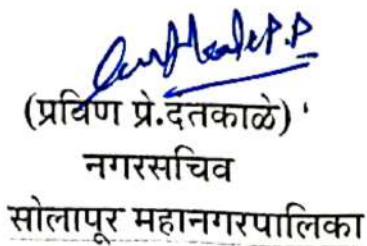 (प्रविण प्रे.दतकाळे)
नगरसचिव
सोलापूर महानगरपालिका